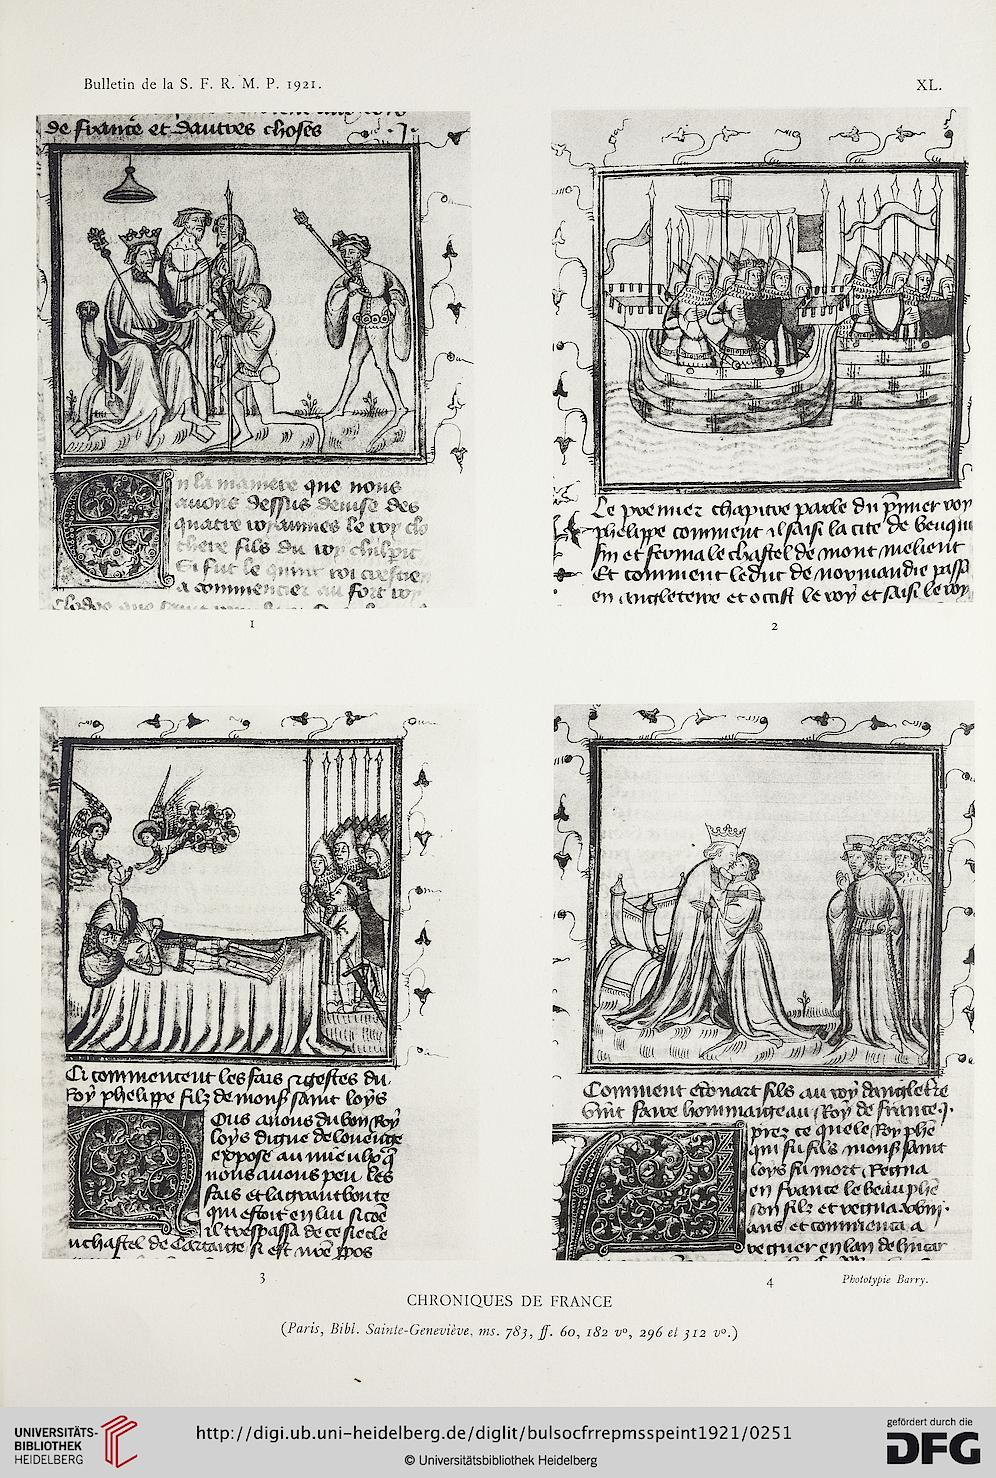 Bulletin de la S. F. R. M. P. 1921.
XL.
de france et dautres choses
n la maniere que nous
auons dessus deuise des
quatre royaumes le roy clo
there fils du roy chilperic
Si fut le quint roi crestien
a commencier au fort roy
1
Le premier chapitre parle du pmier roy
phelippe comment il saisi la cite de
sin et ferma le chastel de mont melient
Et comment le duc de normandie passa
en angleterre et occist le roy et saisi le roy
2
Ci commencent les fais et gestes du
Roy phelippe filz de mons saint loys
Ous auons du bon Roy
loys digne de louenge
expose au mieulx q
nous auons peu les
fais et la grant bonte
qui estoit en lui si cõe
il trespassa de ce siecle
u chastel de Cartaige si est
3
Comment edouart fils au roy dangleterre
vint faire hommaige au Roy de france
pres ce que le Roy phe
qui fu fils mons saint
loys fu mort Regna
en france le beau phe
son filz et regna
ans et commenca a
regner en lan de
4
Phototypie Barry.
CHRONIQUES DE FRANCE
(Paris, Bibl. Sainte-Geneviève, ms. 783, ff. 60, 182 vº, 296 et 312 vº.)
UNIVERSITÄTS-
BIBLIOTHEK
HEIDELBERG
http://digi.ub.uni-heidelberg.de/diglit/bulsocfrrepmsspeint1921/0251
© Universitätsbibliothek Heidelberg
gefördert durch die
DFG